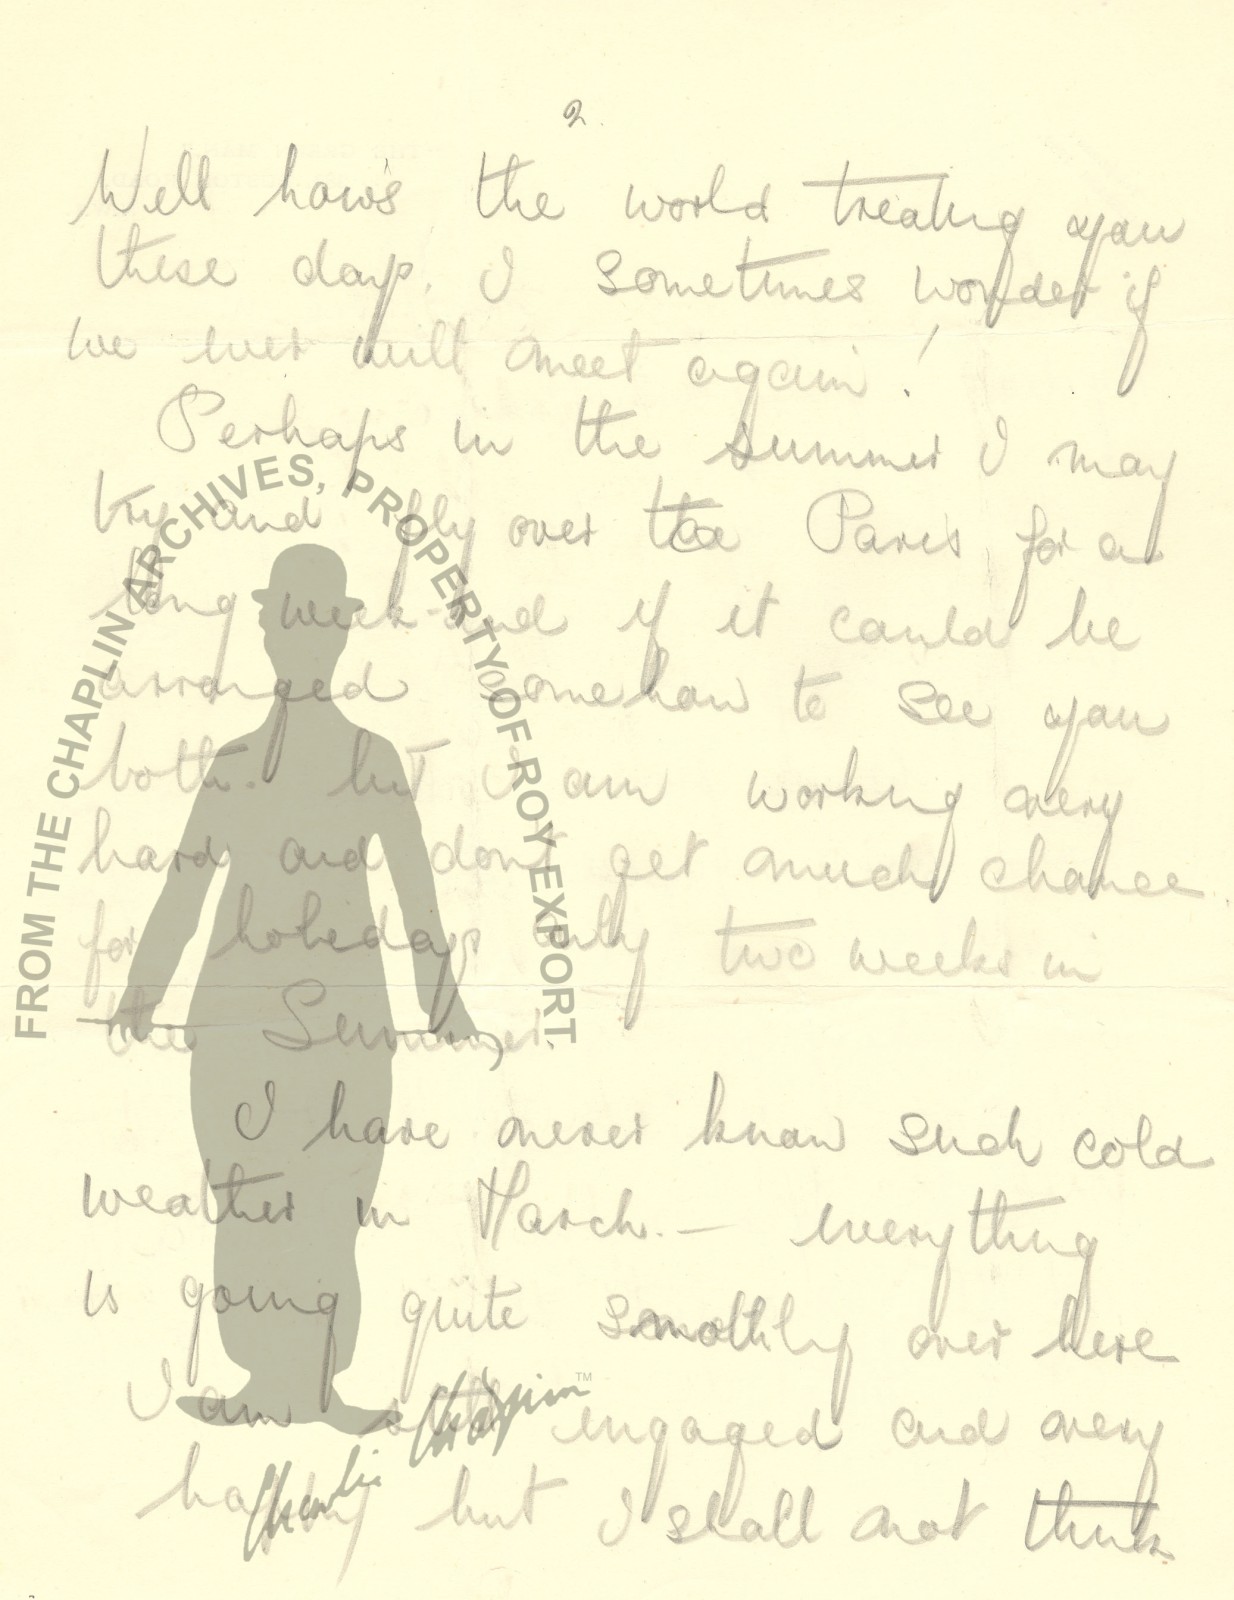 2.
Well how's the world treating you
these days. I sometimes wonder if
we ever will meet again!
Perhaps in the summer I may
try and fly over to Paris for a
long week-end if it could be
arranged somehow to see you
both. but I am working very
hard and dont get much chance
for holidays only two weeks in
the Summer.
I have never know such cold
weather in March. — everything
is going quite smothly over here
I am still engaged and very
happy but I shall not think
FROM THE CHAPLIN ARCHIVES, PROPERTY OF ROY EXPORT
Charlie Chaplin™